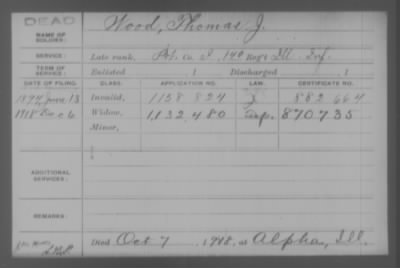 DEAD
NAME OF SOLDIER: Wood, Thomas J.
SERVICE: Late rank, Pvt. Co. I, 140 Reg't Ill. Inf.
TERM OF SERVICE: Enlisted , 1 Discharged , 1
DATE OF FILING. CLASS. APPLICATION NO. LAW. CERTIFICATE NO.
1892 June 13 Invalid, 1158 824 882 664
1918 Dec 06 Widow, 1,132,480 870,735
Minor,
ADDITIONAL SERVICES:
REMARKS:
Died Oct 7 , 1918, at Alpha, Ill.